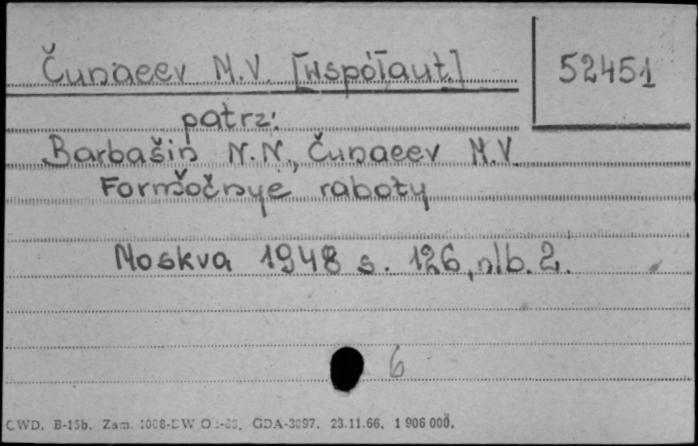 Čunaeev M.V. [współaut.]
52451
patrz:
Barbašin N.N., Čunaeev M.V.
Formočnye raboty
Moskva 1948 s. 126, nlb. 2.
6
CWD. B-15b. Zam. GDA-3097. 23.11.66. 1 906 000.